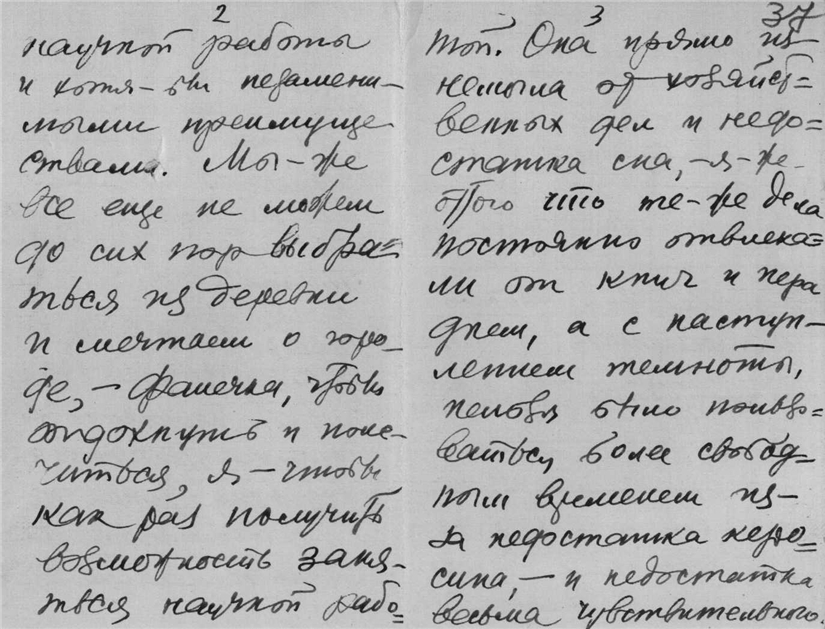 2
научной работы
и хотя-бы незамени-
мыми преимуще
ствами. Мы-же
все еще не можем
до сих пор выбра=
ться из деревни
и мечтаем о горо-
де, – Фанечка, чтобы
отдохнуть и поле-
читься, я – чтобы
как раз получить
возможность заня-
ться научной рабо=
3 37
той. Она прямо из-
немогла от хозяйст=
венных дел и недо=
статка сна, – я-же-
оттого что те-же дела
постоянно отвлека=
ли от книг и пера
днем, а с наступ-
лением темноты,
нельзя было пользо=
ваться более свобод=
ным временем из-
за недостатка керо=
сина, – и недостатка
весьма чувствительного.